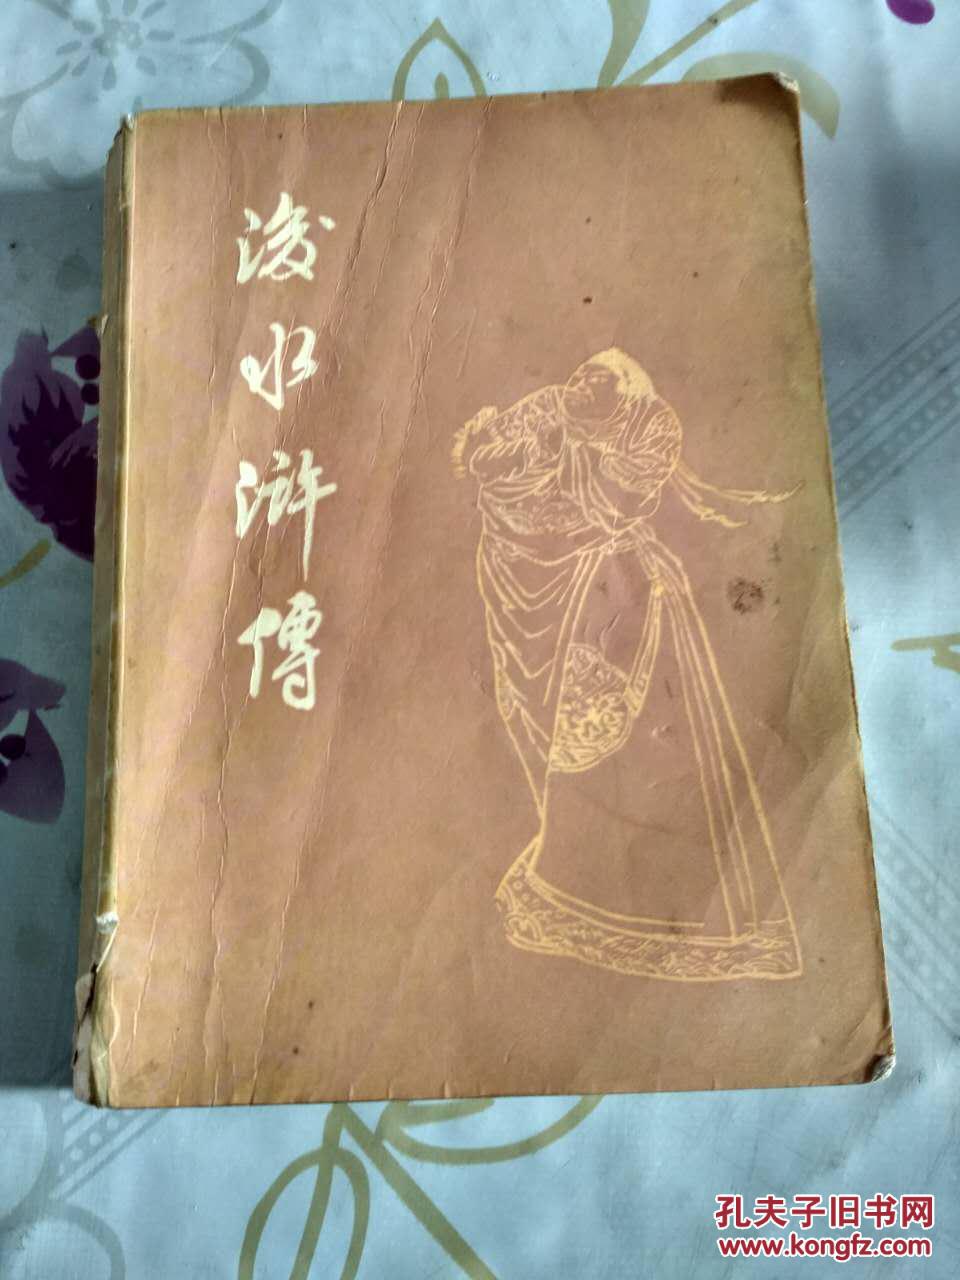 後水滸傳
孔夫子旧书网
www.kongfz.com